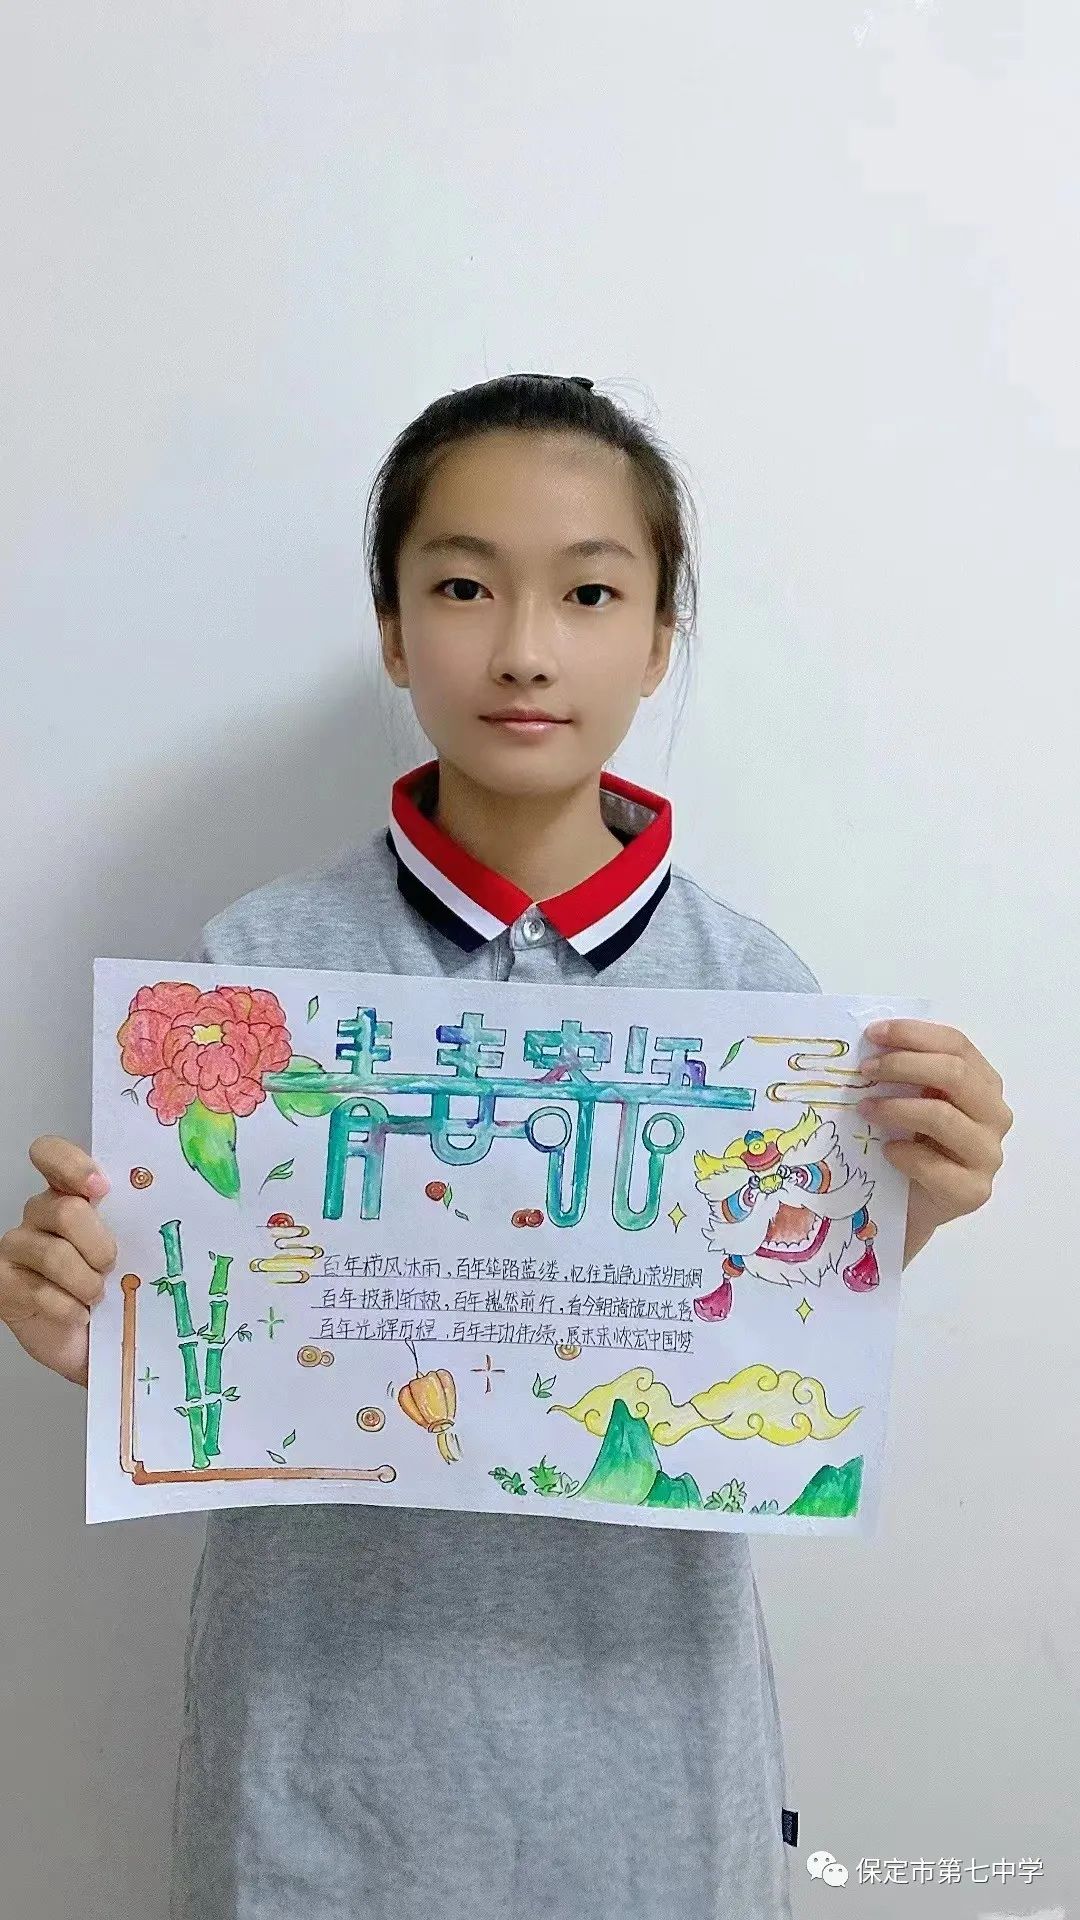 青春寄语
百年栉风沐雨，百年筚路蓝缕，忆往昔峥山荣岁月稠
百年披荆斩棘，百年撖然前行，看今朝旖旎风光秀
百年光辉历程，百年丰功伟绩，展未来恢宏中国梦
保定市第七中学